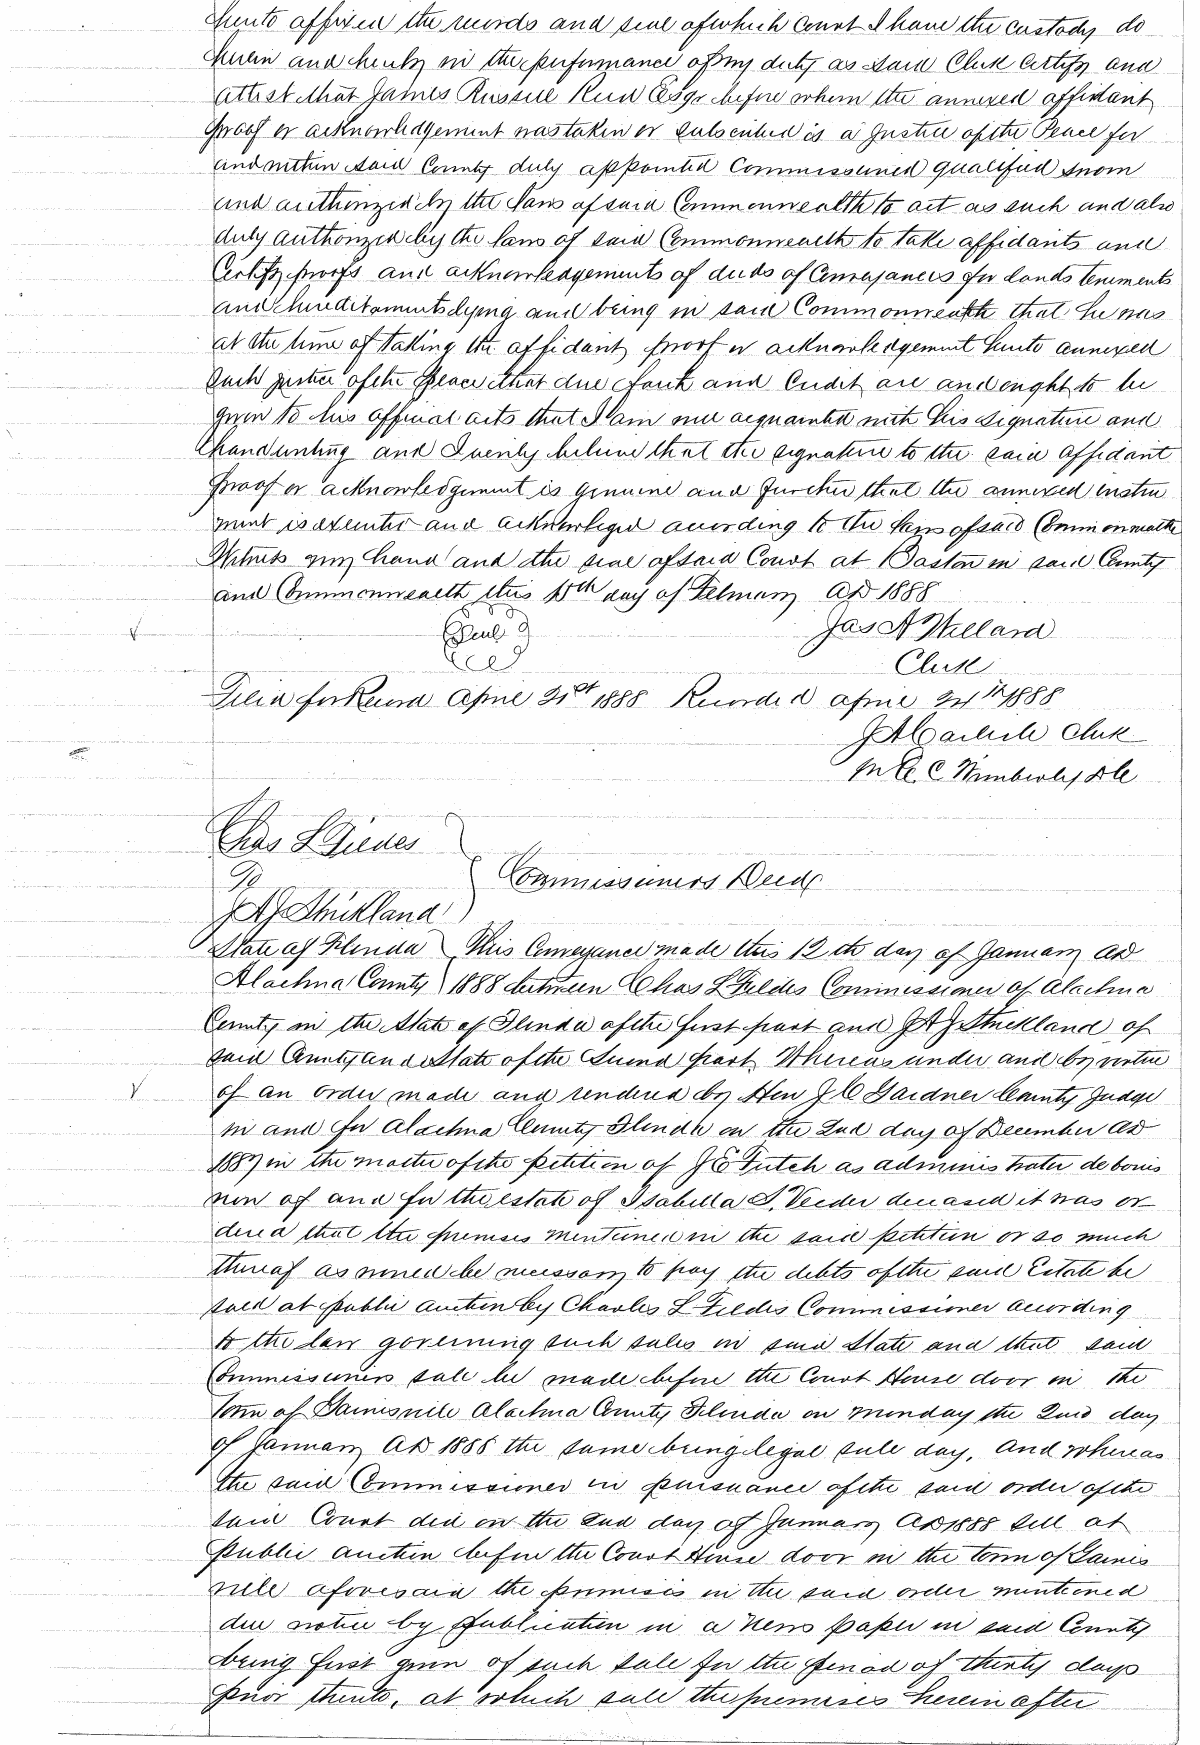 hereto affixed the records and seal of which Court I have the custody do
herein and hereby in the performance of my duty as said Clerk Certify and
attest that James Russell Reed Esqr before whom the annexed affidavit
proof or acknowledgement was taken or subscribed is a Justice of the Peace for
and within said County duly appointed Commissioned qualified sworn
and authorized by the laws of said Commonwealth to act as such and also
duly authorized by the laws of said Commonwealth to take affidavits and
Certify proofs and acknowledgements of deeds of Conveyances for lands tenements
and hereditaments lying and being in said Commonwealth that he was
at the time of taking the affidavit proof or acknowledgement hereto annexed
such justice of the peace that due faith and Credit are and ought to be
given to his official acts that I am well acquainted with his signature and
handwriting and I verily believe that the signature to the said affidavit
proof or acknowledgement is genuine and further that the annexed instru
ment is executed and acknowledged according to the laws of said Commonwealth
Witness my hand and the seal of said Court at Boston in said County
and Commonwealth this 15th day of February AD 1888
Seal
Jas A Willard
Clerk
Filed for Record April 21st 1888 Recorded April 24th 1888
J A Carlisle Clerk
C Wimberly DC
Chas L Fildes
To
Commissioners Deed
J A J Strickland
State of Florida This Conveyance made this 12th day of January AD
Alachua County 1888 between Chas L Fildes Commissioner of Alachua
County in the State of Florida of the first part and J A J Strickland of
said County and State of the Second part Whereas under and by virtue
of an order made and rendered by Hon J C Gardner County Judge
in and for Alachua County Florida on the 2nd day of December AD
1887 in the matter of the petition of J E Futch as administrator de bonis
non of and for the estate of Isabella S. Veeder deceased it was or-
dered that the premises mentioned in the said petition or so much
thereof as would be necessary to pay the debts of the said Estate be
sold at public auction by Charles L Fildes Commissioner according
to the law governing such sales in said State and that said
Commissioners sale be made before the Court House door in the
Town of Gainesville Alachua County Florida on Monday the 2nd day
of January AD 1888 the same being legal sale day. And whereas
the said Commissioner in pursuance of the said order of the
said Court did on the 2nd day of January AD 1888 sell at
public auction before the Court House door in the town of Gaines
ville aforesaid the premises in the said order mentioned
due notice by publication in a News paper in said County
being first given of such sale for the period of thirty days
prior thereto, at which sale the premises herein after